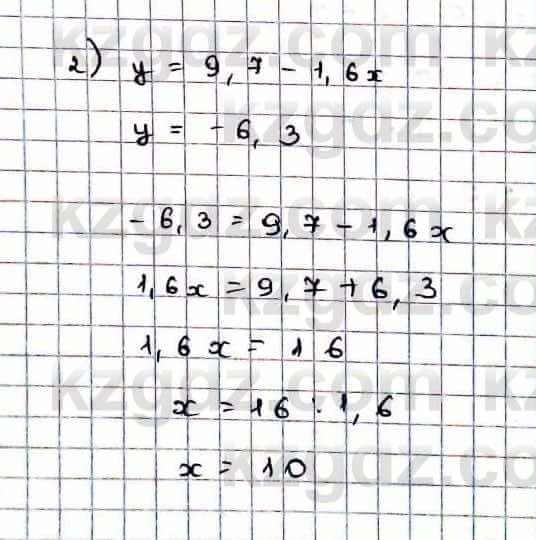 2) y = 9,7 - 1,6x
y = -6,3
-6,3 = 9,7 - 1,6x
1,6x = 9,7 + 6,3
1,6x = 16
x = 16 : 1,6
x = 10
kzgdz.com